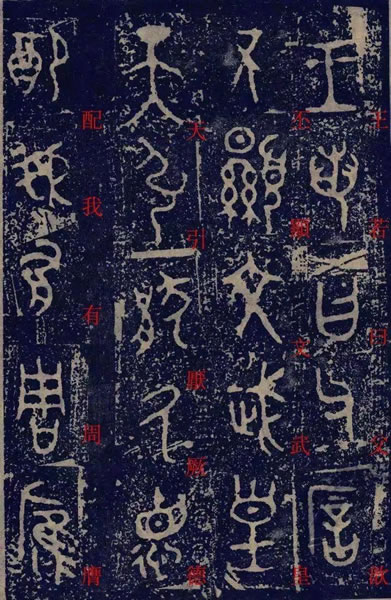 王若曰父
丕顯文武皇
天引厭厥德
配我有周膺